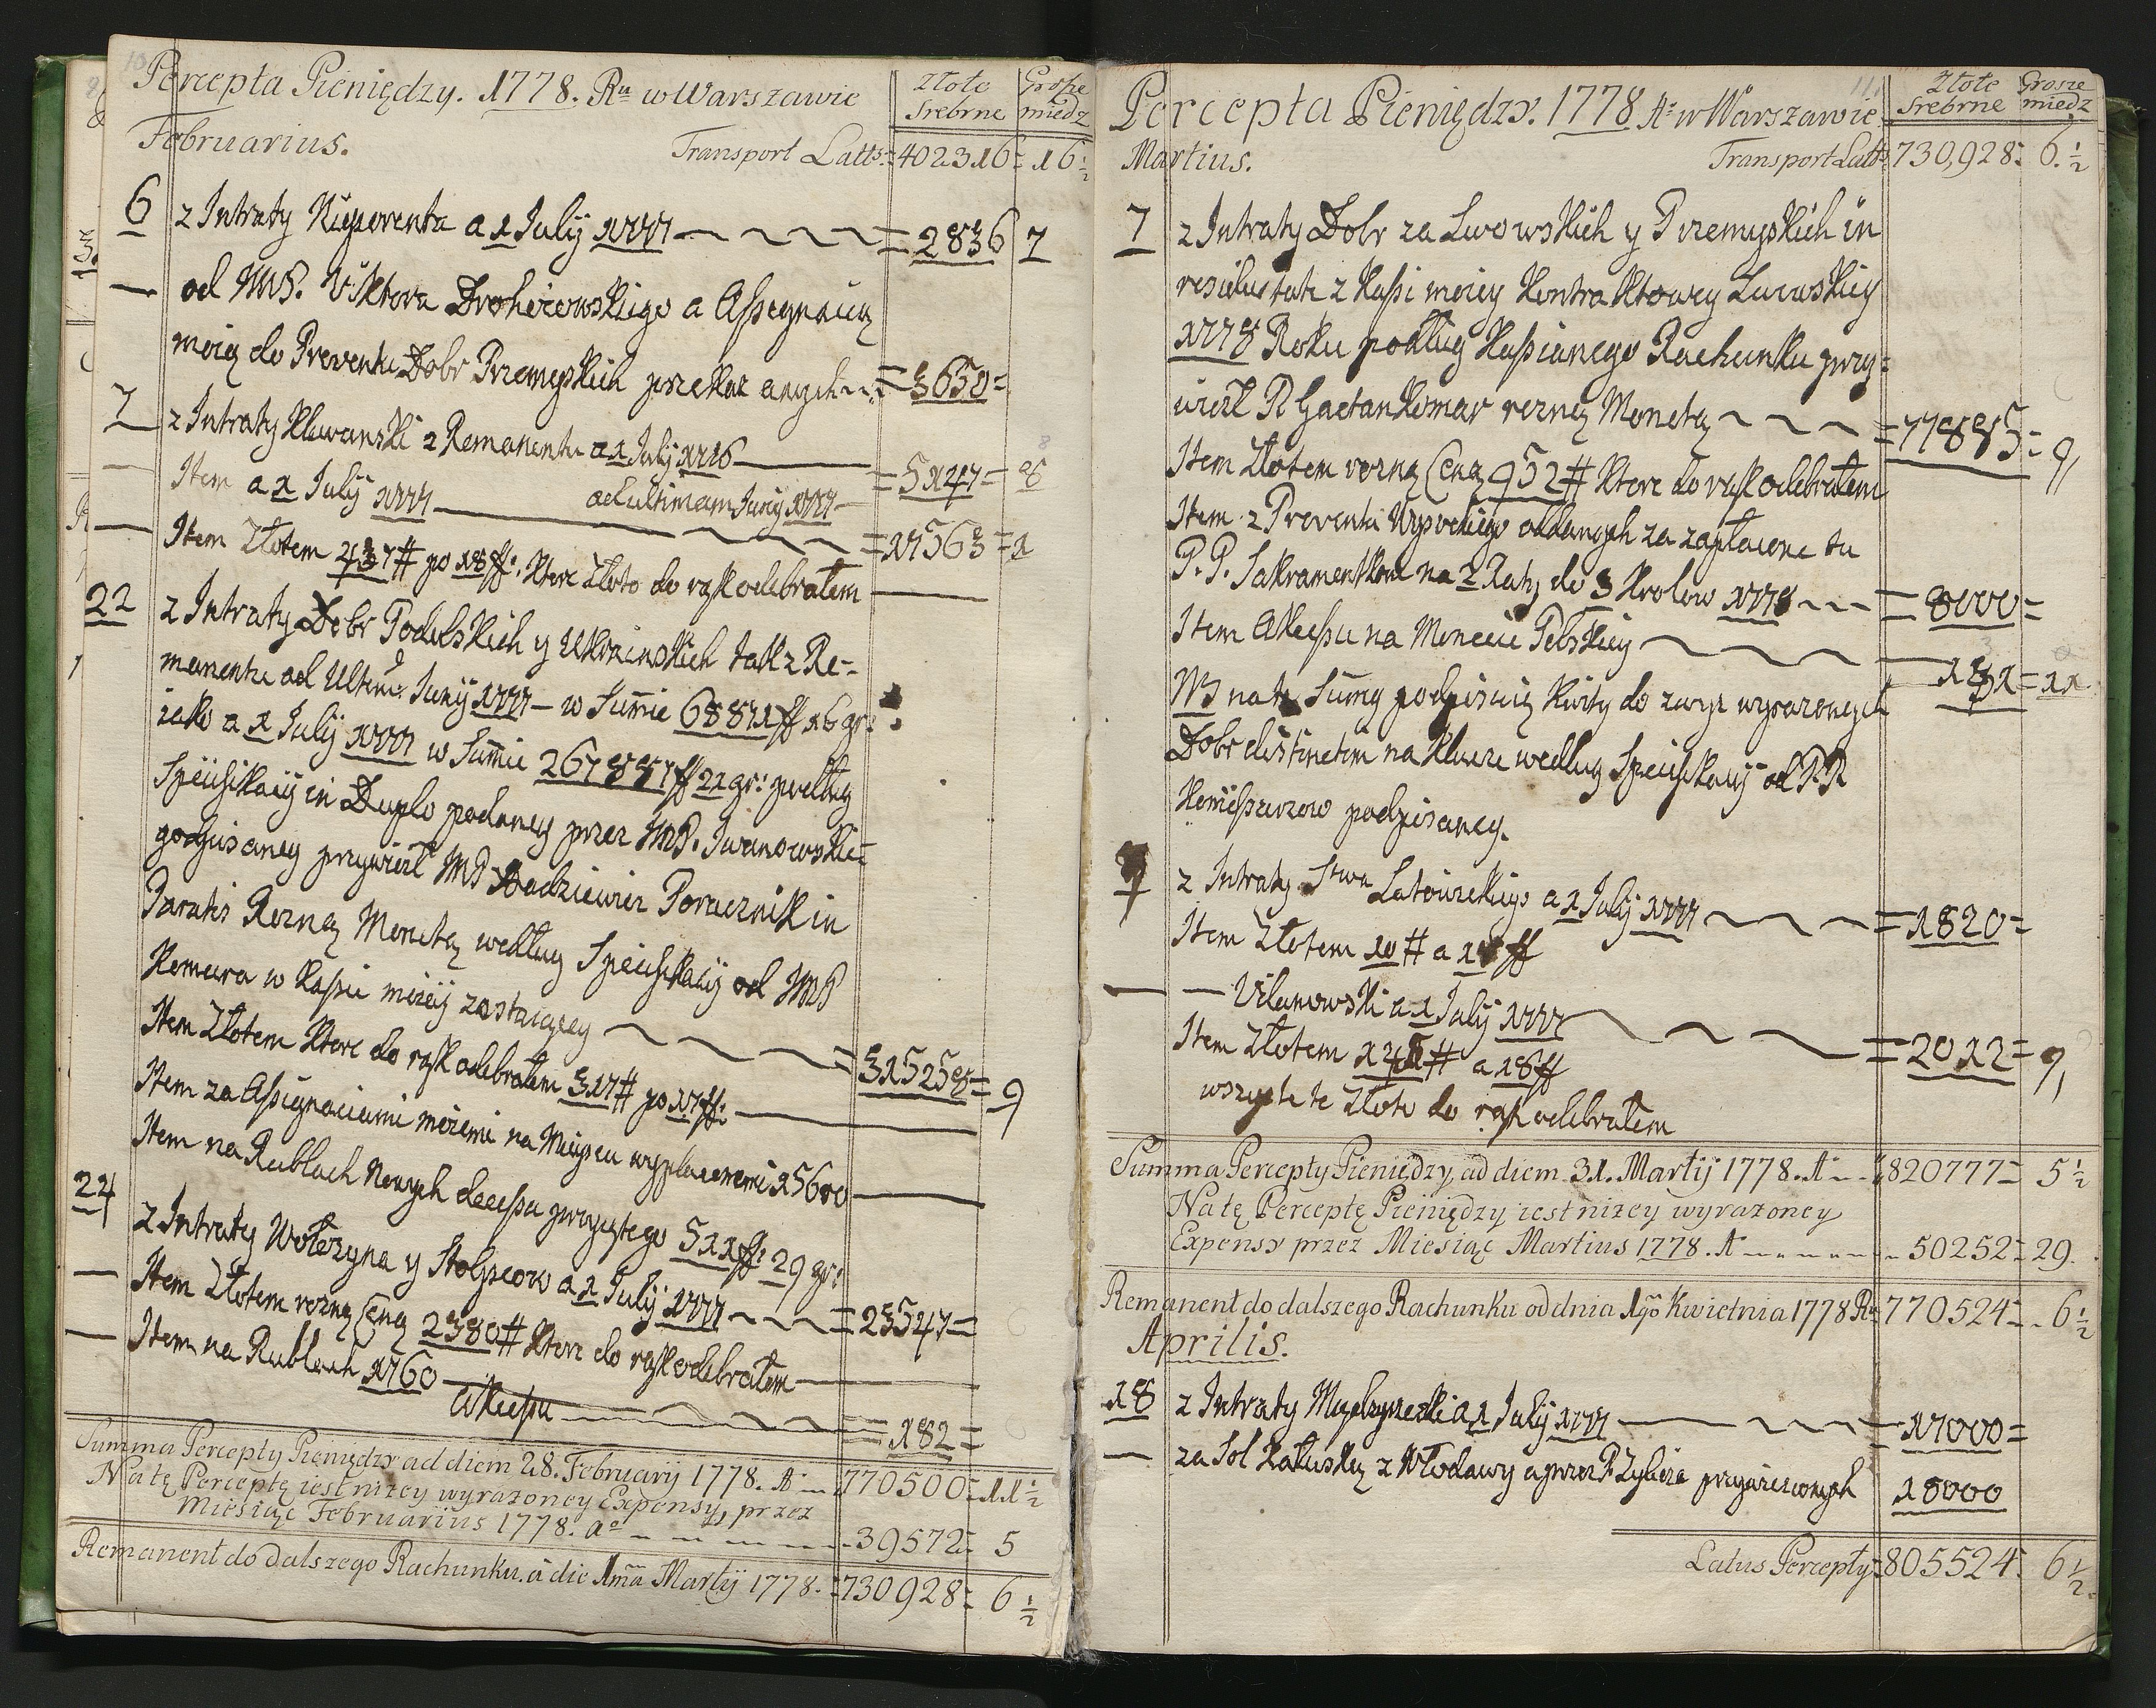 Percepta Pieniędzy. 1778. Ru w Warszawie
Złote Srebrne
Grosze miedz
Februarius. Transport Latt: 402316 16 1/2
6 z Intraty Nieporenta a 1 July 1777 2836 7
— od JMP. Viktora Drohoiowskiego a Assegnacią
moią do Proventu Dobr Przemyskich przekazanych 3650
7 z Intraty Klewanski z Remanentu a 1 July 1776
ad ultimam Junij 1777 5147 8
— Item a 1 July 1777 17563 1
— Item Złotem 437 # po 18 ff: ktore Złoto do rąk odebrałem
22 z Intraty Dobr Podolskich y Ukrainskich tak z Re-
manentu ad Ultim: Junij 1777 — w Summie 68871 ff 16 gr:
iako a 1 July 1777 w Summie 267887 ff 21 gr: podług
Specifikacij in Duplo podaney przez JMP. Iwanowskie-
podpisaney przywiozł JMP Radziewicz Porucznik in
Paratis Rozną Monetą według Specifikacij od JMP
Komara w Kassie moieij zostaiącey 315258 9
Item Złotem ktore do rąk odebrałem 317 # po 17 ff:
Item za Assignaciami moiemi na Mieyscu wypłaconemi 15600
Item na Rublach Nowych decessu przyiętego 511 ff: 29 gr:
24 z Intraty Wołożyna y Stołpcow a 1 July 1777 23547
— Item Złotem rozną Ceną 2380 # ktore do rąk odebrałem
— Item na Rublach 1760
Akcessu 182
Summa Percepty Pieniędzy ad diem 28. Februarij 1778. A 770500 11 1/2
Na tę Perceptę iest niżey wyrażoney Expensy, przez
Miesiąc Februarius 1778. Ao 39572 5
Remanent do dalszego Rachunku â die 1ma Martij 1778. 730928 6 1/2
11.
Percepta Pieniędzy. 1778 A: w Warszawie
Złote Srebrne
Grosze miedz
Martius. Transport Latt: 730,928 6. 1/2
7 z Intraty Dobr za Lwowskich y Przemyskich in
resultate z Kassi moiey Kontraktowey Lwowskiey
1778 Roku podług Kassianego Rachunku przy-
wiozł P. Gaetan Komar rozną Monetą 77885 9
Item Złotem rozną Ceną 952 # ktore do rąk odebrałem
Item z Proventu Wysockiego oddanych za zapłacone tu
P.P. Sakramentkom na 2 Ratę do 3 Krolow 1778 8000
Item Akcessu na Monecie Polskiey 131 11
NB na tę Summę podpisuię Kwity do zwyż wyrażonych
Dobr distinctim na Klucze według Specifikacij od PP
Komissarzow podpisaney.
9 z Intraty Stwa Latowickiego a 1 July 1777 1820
Item Złotem 10 # a 18 ff
— — Vilanowski a 1 July 1777 2012 9
Item Złotem # a 18 ff
wszystkie te Złoto do rąk odebrałem
Summa Percepty Pieniędzy, ad diem 31. Martij 1778. A 820777 5 1/2
Na tę Perceptę Pieniędzy iest niżey wyrażoney
Expensy przez Miesiąc Martius 1778. A 50252 29.
Remanent do dalszego Rachunku od dnia 1go Kwietnia 1778 Ru 770524 6 1/2
Aprilis.
18 z Intraty Międzyrzecki a 1 July 1777 17000
— za Sol Kałuską z Włodawy a przez P. Zybera przywiezionych 18000
Latus Percepty 805524 6 1/2